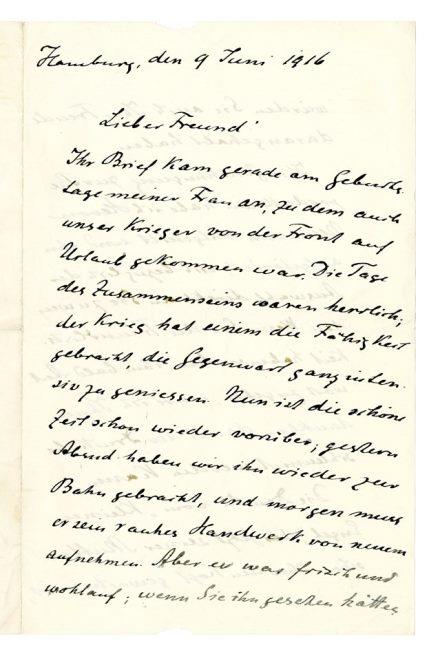 Hamburg, den 9 Juni 1916
Lieber Freund!
Ihr Brief kam gerade am Geburts-
tage meiner Frau an, zu dem auch
unser Krieger von der Front auf
Urlaub gekommen war. Die Tage
des Zusammenseins waren herrlich;
der Krieg hat einem die Fähigkeit
gebracht, die Gegenwart ganz inten-
siv zu geniessen. Nun ist die schöne
Zeit schon wieder vorüber; gestern
Abend haben wir ihn wieder zur
Bahn gebracht, und morgen muss
er sein rauhes Handwerk von neuem
aufnehmen. Aber er war frisch und
wohlauf; wenn Sie ihn gesehen hätten